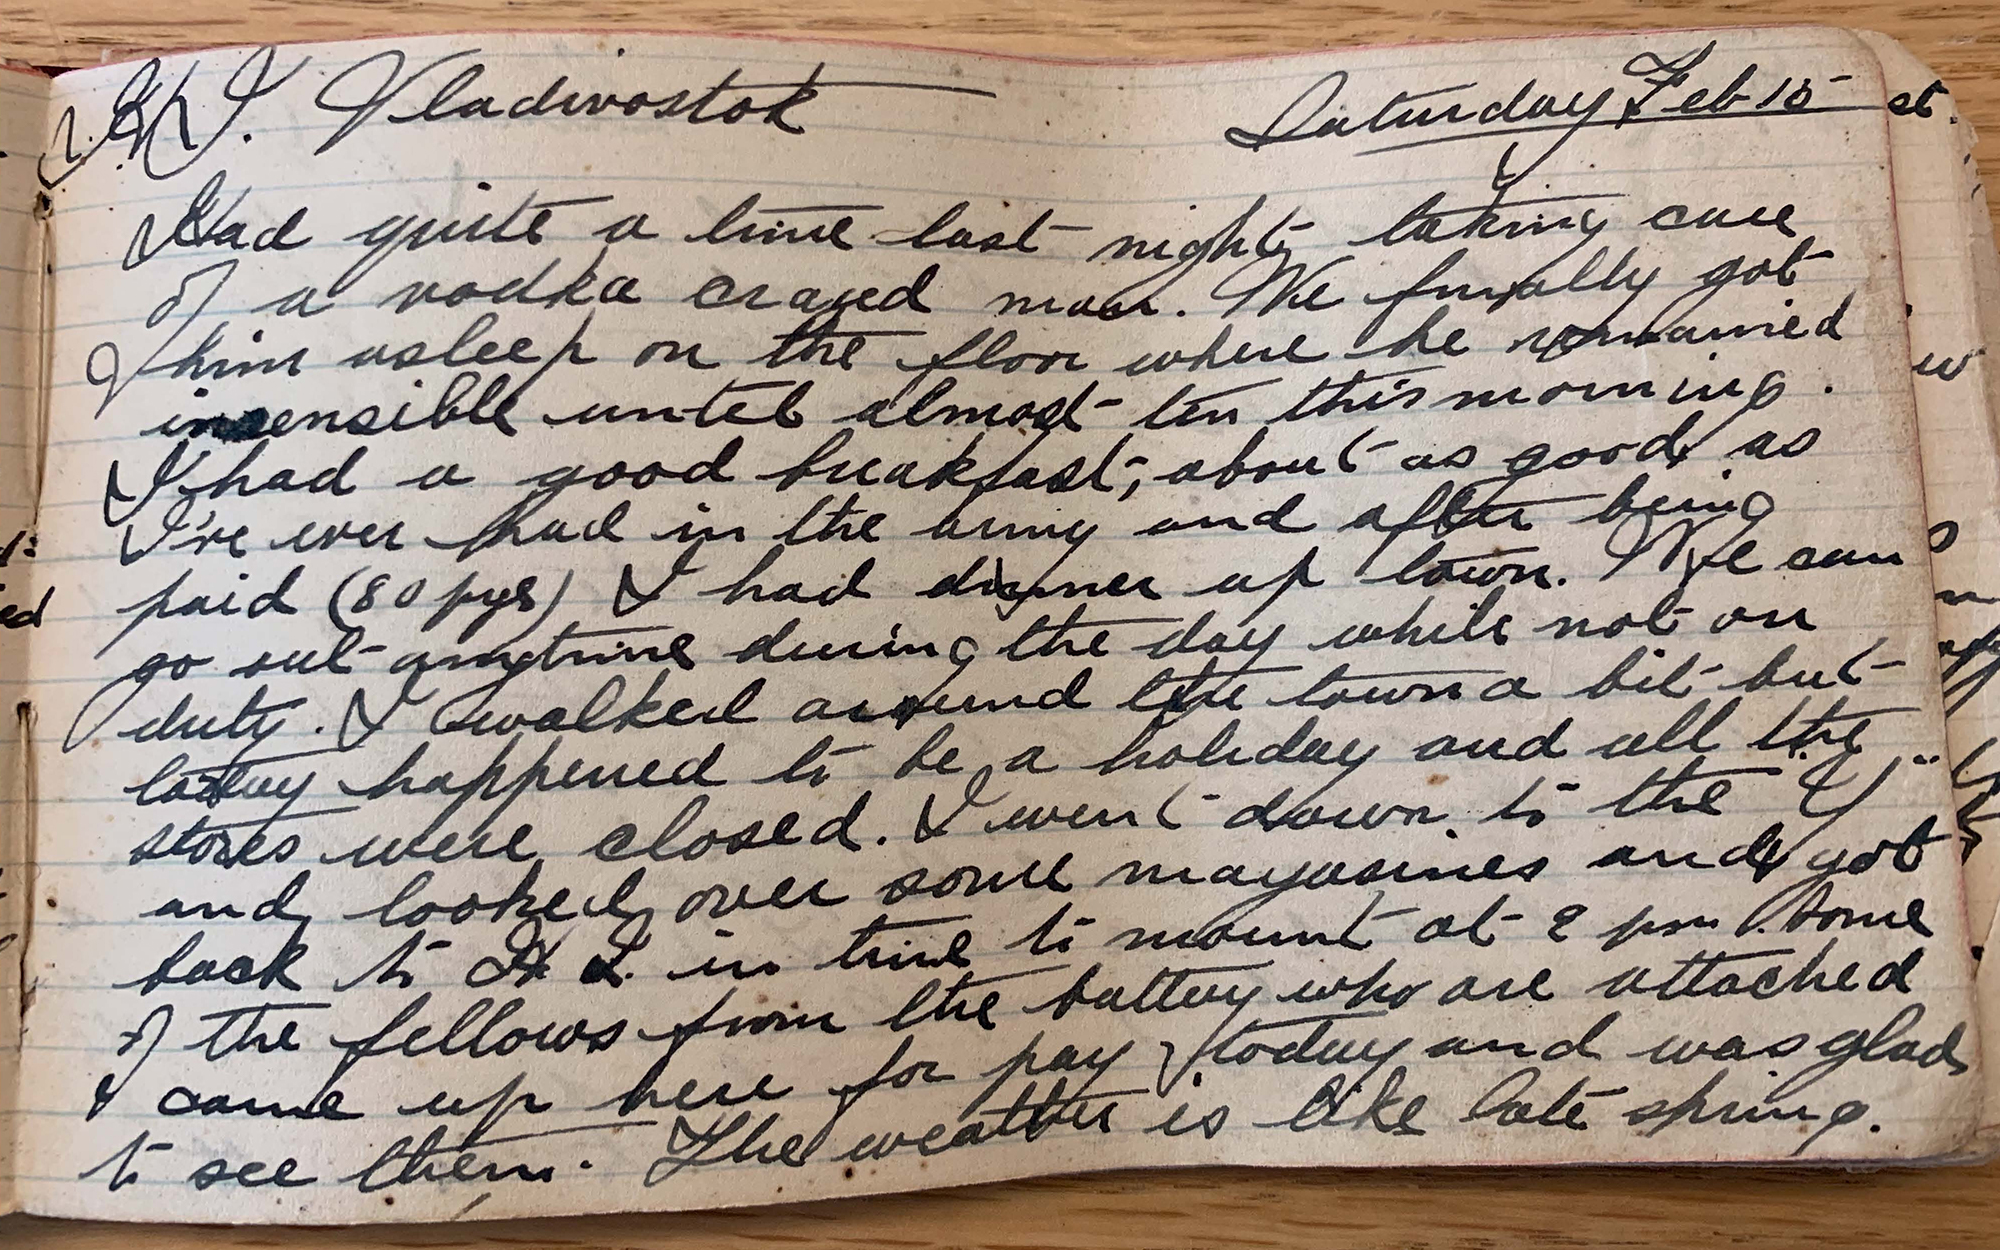 Vladivostok Saturday Feb 15
Had quite a time last night taking care
of a vodka crazed man. We finally got
him asleep on the floor where he remained
insensible until almost ten this morning.
I had a good breakfast, about as good as
I've ever had in the army and after being
paid (80 ) I had dinner up town. We can
go out anytime during the day while not on
duty. I walked around the town a bit but
today happened to be a holiday and all the
stores were closed. I went down to the "Y"
and looked over some magasines and got
back to in time to mount at 2 pm. Some
of the fellows from the battery who are attached
came up here for pay today and was glad
to see them. The weather is like late spring.